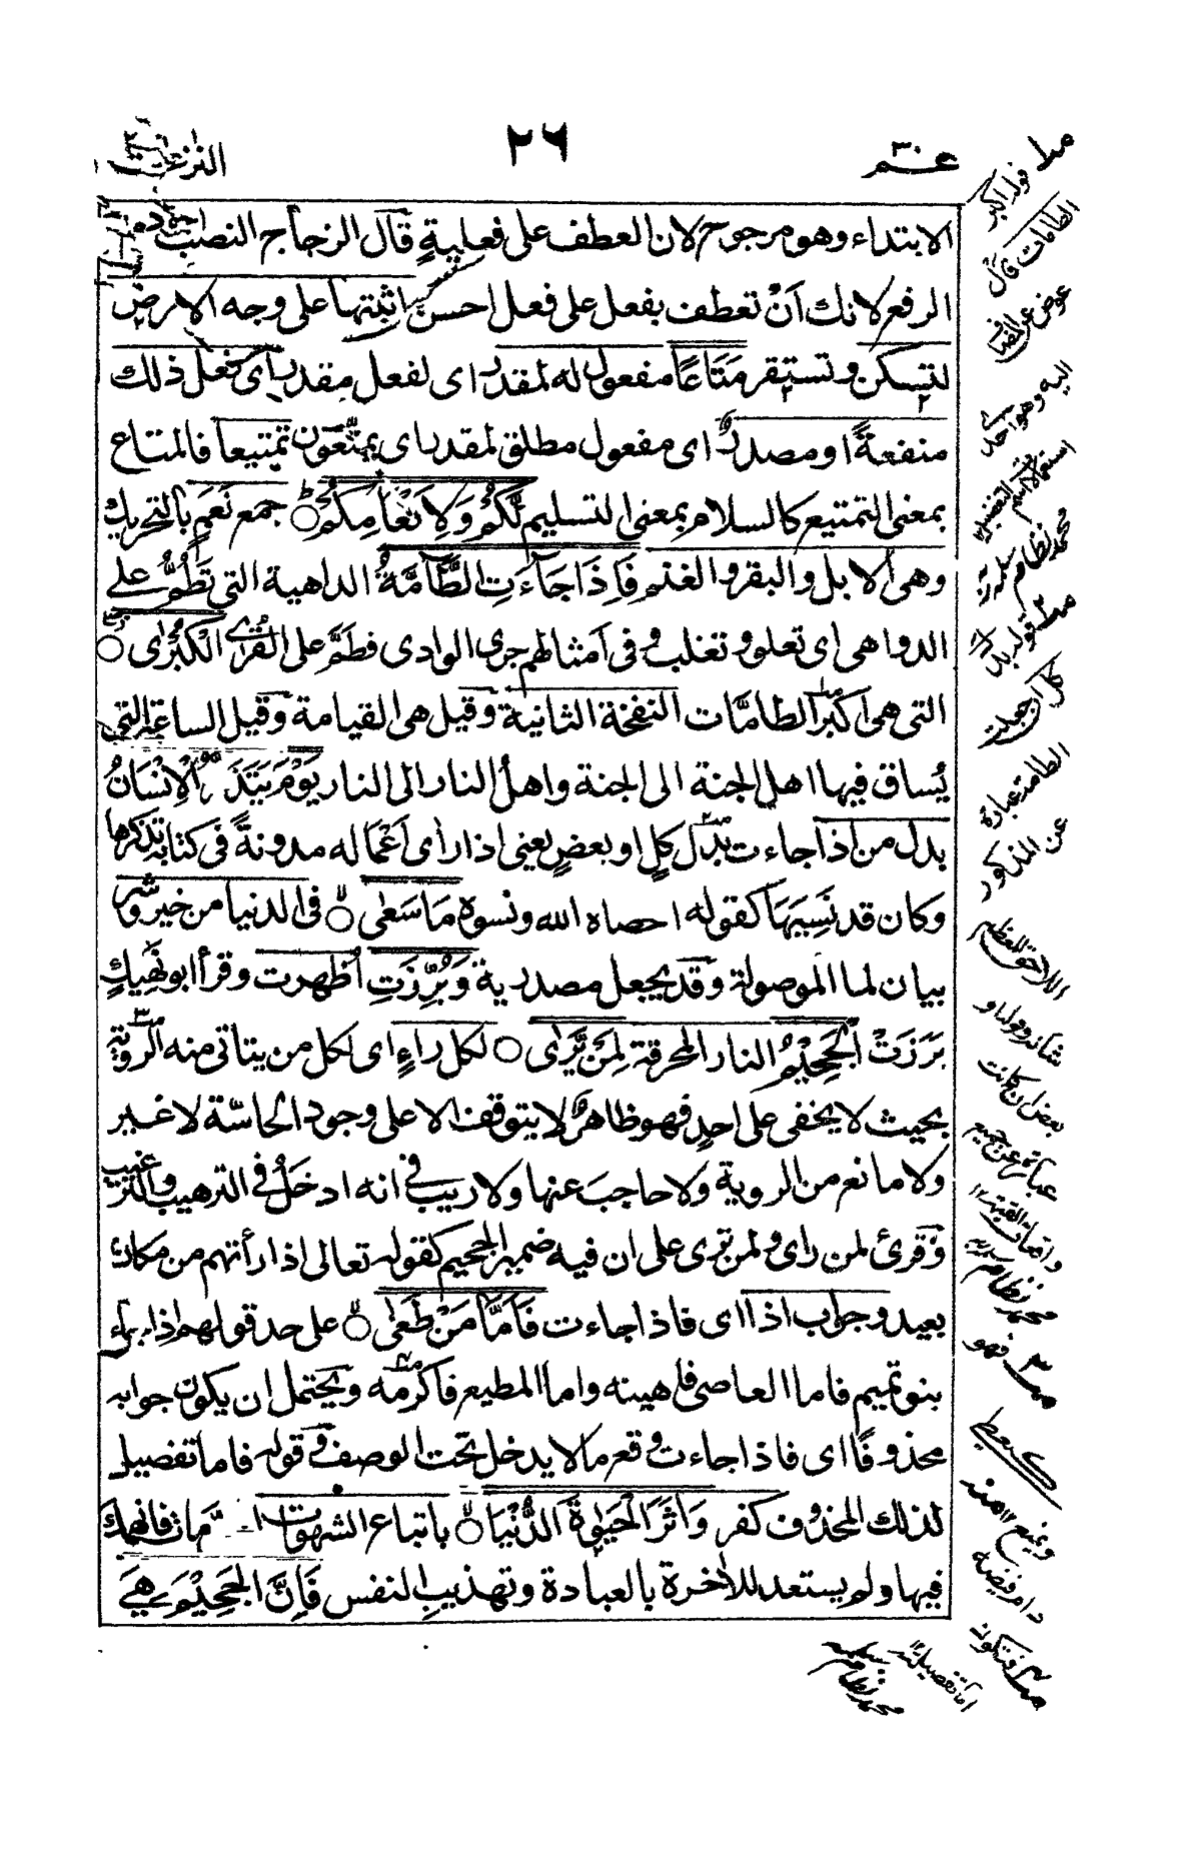 عـــم ٣٠
٢٦
النزعت
الابتداء وهو مرجوح لان العطف على فعلية قال الزجاج النصب اجود من
الرفع لانك ان تعطف بفعل على فعل احسن اثبتها على وجه الارض
لتسكن وتستقر مَتَاعًا مفعول له لمقدر اى لفعل مقدر اى فعل ذلك
منفعةً او مصدرٌ اى مفعول مطلق لمقدر اى يمتّعون تمتيعا فالمتاع
بمعنى التمتيع كالسلام بمعنى التسليم لَّكُمْ وَلِاَنْعَامِكُمْ ○ جمع نَعَم بالتحريك
وهى الابل والبقر والغنم فَاِذَا جَآءَتِ الطَّآمَّةُ الداهية التى تَطُمُّ على
الدواهى اى تعلو وتغلب وفى امثالهم جرى الوادى فطَمَّ على القُرٰى الْكُبْرٰى ○
التى هى اكبر الطامّات النفخة الثانية وقيل هى القيامة وقيل الساعة التى
يُساق فيها اهل الجنة الى الجنة واهلُ النار الى النار يَوْمَ يَتَذَكَّرُ الْاِنْسَانُ
بدل من اذا جاءت بدَل كلٍ او بعضٍ يعنى اذا راى اَعْمَاله مدونةً فى كتابه تذكرها
وكان قد نَسِيَهَا كقوله احصاه الله ونسوه مَا سَعٰى ○ فى الدنيا من خير وشر
بيان لما الموصولة وقد يجعل مصدرية وَبُرِّزَتِ اُظهرت وقرأ ابو نَهِيكٍ
بَرَزَتْ الْجَحِيْمُ النار المحرقة لِمَنْ يَّرٰى ○ لكل راءٍ اى لكل من يتاتى منه الروية
بحيث لا يخفى على احدٍ فهو ظاهرٌ لا يتوقف الا على وجود الحاسّة لا غير
ولا مانع من الروية ولا حاجب عنها ولا ريب فى انه ادخَلُ فى الترهيب والترغيب
وقرئ لمن راى ولمن ترى على ان فيه ضمير الجحيم كقوله تعالى اذا رأتهم من مكان
بعيد وجواب اذا اى فاذا جاءت فَاَمَّا مَنْ طَغٰى ○ على حد قولهم اذا جاء
بنو تميم فاما العاصى فاهينه واما المطيع فاكرمه ويحتمل ان يكون جوابه
محذوفًا اى فاذا جاءت وقع ما لا يدخل تحت الوصف وقوله فاما تفصيل
لذلك المحذوف كفر وَاٰثَرَ الْحَيٰوةَ الدُّنْيَا ○ باتباع الشهوات فانهمك
فيها ولم يستعد للاٰخرة بالعبادة وتهذيب النفس فَاِنَّ الْجَحِيْمَ هِيَ
قوله اكبر
الطامات
عوض عن المضاف
اليه وهو
محمد نظام
قوله بدل
كل
الطامة عبارة
عن المذكور
بعض ان كانت
محمد نظام
فهو
ويمنع ١٢ منه
فتكون
اما تفصيل
محمد نظام